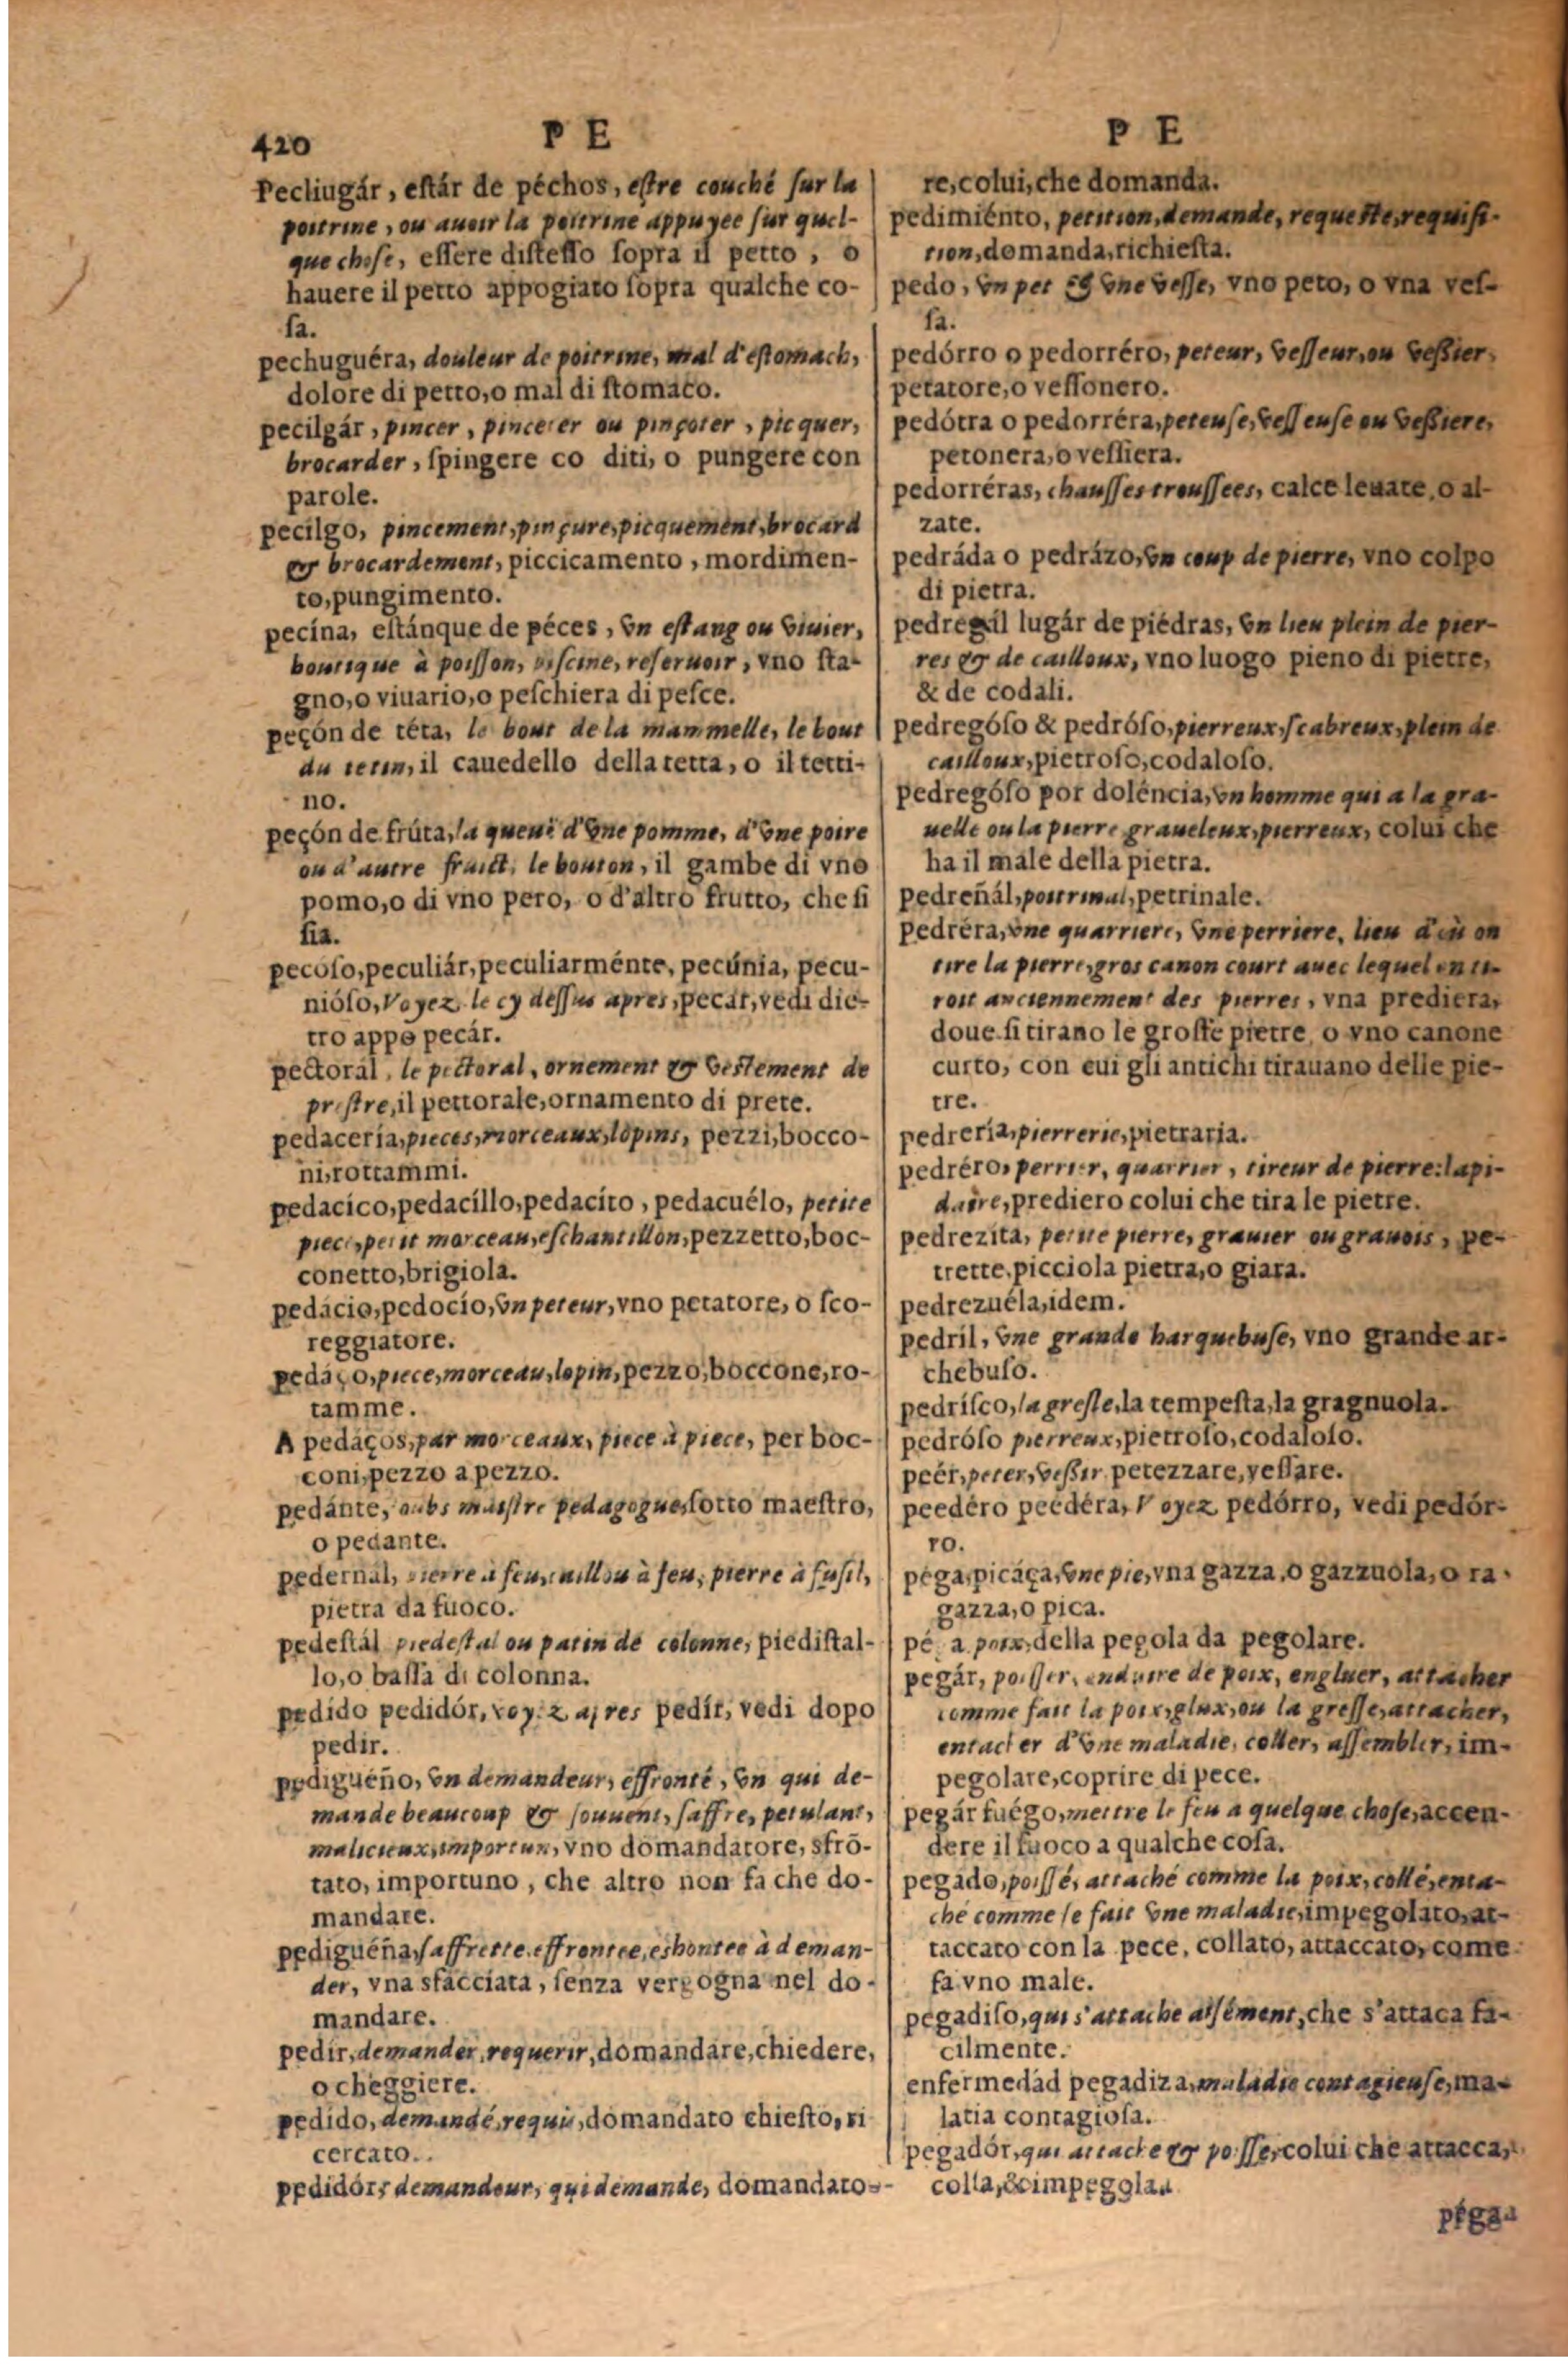 420
P E
Pecliugár, eſtár de péchos, eſtre couché ſur la
poitrine, ou auoir la poitrine appuyee ſur quel-
que choſe, eſſere diſteſſo ſopra il petto, o
hauere il petto appogiato ſopra qualche co-
ſa.
pechuguéra, douleur de poitrine, mal d'eſtomach,
dolore di petto, o mal di ſtomaco.
pecilgár, pincer, pinceter ou pinçoter, picquer,
brocarder, ſpingere co diti, o pungere con
parole.
pecilgo, pincement, pinçure, picquement, brocard
& brocardement, piccicamento, mordimen-
to, pungimento.
pecína, eſtánque de péces, vn eſtang ou viuier,
boutique à poiſſon, piſcine, reſeruoir, vno ſta-
gno, o viuario, o peſchiera di peſce.
peçón de téta, le bout de la mammelle, le bout
du tetin, il cauedello della tetta, o il tetti-
no.
peçón de frúta, la queuë d'vne pomme, d'vne poire
ou d'autre fruict, le bouton, il gambe di vno
pomo, o di vno pero, o d'altro frutto, che ſi
ſia.
pecoſo, peculiár, peculiarménte, pecúnia, pecu-
nióſo, Voyez le cy deſſus apres, pecar, vedi die-
tro appo pecár.
pectorál, le pectoral, ornement & veſtement de
preſtre, il pettorale, ornamento di prete.
pedacería, pieces, morceaux, lopins, pezzi, bocco-
ni, rottammi.
pedacíco, pedacíllo, pedacíto, pedacuélo, petite
piece, petit morceau, eſchantillon, pezzetto, boc-
conetto, brigiola.
pedácio, pedocío, vn peteur, vno petatore, o ſco-
reggiatore.
pedáço, piece, morceau, lopin, pezzo, boccone, ro-
tamme.
A pedaços, par morceaux, piece à piece, per boc-
coni, pezzo a pezzo.
pedánte, ſoubs maiſtre pedagogue, ſotto maeſtro,
o pedante.
pedernál, pierre à feu, caillou à feu, pierre à fuſil,
pietra da fuoco.
pedeſtál piedeſtal ou patin de colonne, piediſtal-
lo, o baſſa di colonna.
pedido pedidór, voyez apres pedír, vedi dopo
pedir.
pedigueño, vn demandeur, effronté, vn qui de-
mande beaucoup & ſouuent, ſaffre, petulant,
malicieux, importun, vno domandatore, sfrō-
tato, importuno, che altro non fa che do-
mandare.
pediguéña, ſaffrette, effrontee, eshontee à deman-
der, vna sfacciata, ſenza vergogna nel do-
mandare.
pedír, demander, requerir, domandare, chiedere,
o cheggiere.
pedído, demandé, requis, domandato chieſto, ri
cercato.
pedidór, demandeur, qui demande, domandato-
P E
re, colui, che domanda.
pedimiénto, petition, demande, requeſte, requiſi-
tion, domanda, richieſta.
pedo, vn pet & vne veſſe, vno peto, o vna veſ-
ſa.
pedórro o pedorréro, peteur, veſſeur, ou veſsier,
petatore, o veſſonero.
pedótra o pedorréra, peteuſe, veſſeuſe ou veſsiere,
petonera, o veſſiera.
pedorréras, chauſſes trouſſees, calce leuate, o al-
zate.
pedráda o pedrázo, vn coup de pierre, vno colpo
di pietra.
pedregál lugár de piédras, vn lieu plein de pier-
res & de cailloux, vno luogo pieno di pietre,
& de codali.
pedregóſo & pedróſo, pierreux, ſcabreux, plein de
cailloux, pietroſo, codaloſo.
pedregóſo por doléncia, vn homme qui a la gra-
uelle ou la pierre graueleux, pierreux, colui che
ha il male della pietra.
pedreñál, poitrinal, petrinale.
pedréra, vne quarriere, vne perriere, lieu d'où on
tire la pierre, gros canon court auec lequel on ti-
roit anciennement des pierres, vna prediera,
doue ſi tirano le groſſe pietre, o vno canone
curto, con cui gli antichi tirauano delle pie-
tre.
pedrería, pierrerie, pietraria.
pedréro, perrier, quarrier, tireur de pierre: lapi-
daire, prediero colui che tira le pietre.
pedrezíta, petite pierre, grauier ou grauois, pe-
trette, picciola pietra, o giara.
pedrezuéla, idem.
pedríl, vne grande harquebuſe, vno grande ar-
chebuſo.
pedríſco, la greſle, la tempeſta, la gragnuola.
pedróſo pierreux, pietroſo, codaloſo.
peér, peter, veſsir petezzare, veſſare.
peedéro peedéra, Voyez pedórro, vedi pedór-
ro.
péga, picáça, vne pie, vna gazza, o gazzuola, o ra
gazza, o pica.
pé a poix, della pegola da pegolare.
pegár, poiſſer, enduire de poix, engluer, attacher
comme fait la poix, glux, ou la greſſe, attacher,
entacher d'vne maladie, coller, aſſembler, im-
pegolare, coprire di pece.
pegár fuégo, mettre le feu a quelque choſe, accen-
dere il fuoco a qualche coſa.
pegado, poiſſé, attaché comme la poix, collé, enta-
ché comme ſe fait vne maladie, impegolato, at-
taccato con la pece, collato, attaccato, come
fa vno male.
pegadiſo, qui s'attache aiſément, che s'attaca fa-
cilmente.
enfermedád pegadiza, maladie contagieuſe, ma-
latia contagioſa.
pegadór, qui attache & poiſſe, colui che attacca,
colla, & impegola.
péga-